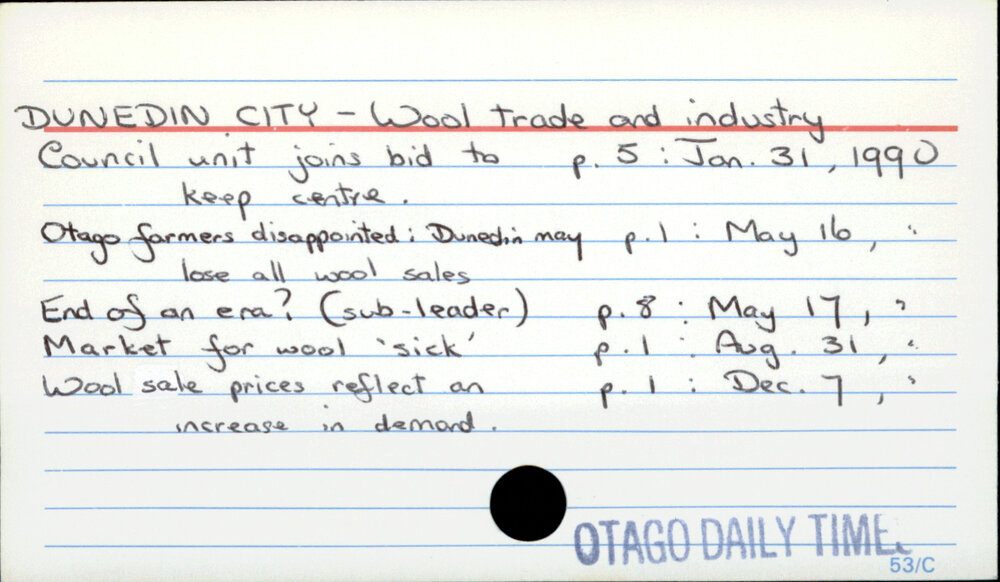 DUNEDIN CITY - Wool trade and industry
Council unit joins bid to p. 5 : Jan. 31, 1990
keep centre.
Otago farmers disappointed: Dunedin may p. 1 : May 16, "
lose all wool sales
End of an era? (sub-leader) p. 8 : May 17, "
Market for wool 'sick' p. 1 : Aug. 31, "
Wool sale prices reflect an p. 1 : Dec. 7, "
increase in demand.
OTAGO DAILY TIME
53/C